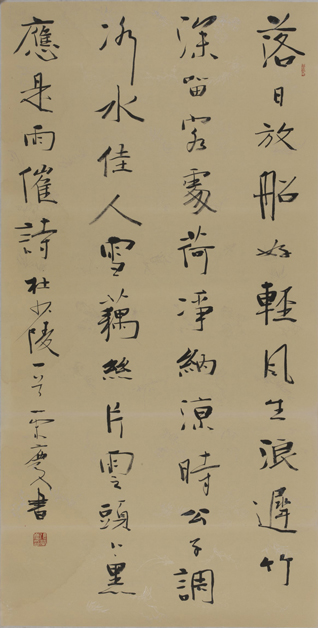 落日放船好輕風生浪遲竹
深留客處荷淨納涼時公子調
冰水佳人雪藕絲片雲頭上黑
應是雨催詩杜少陵一首慶書